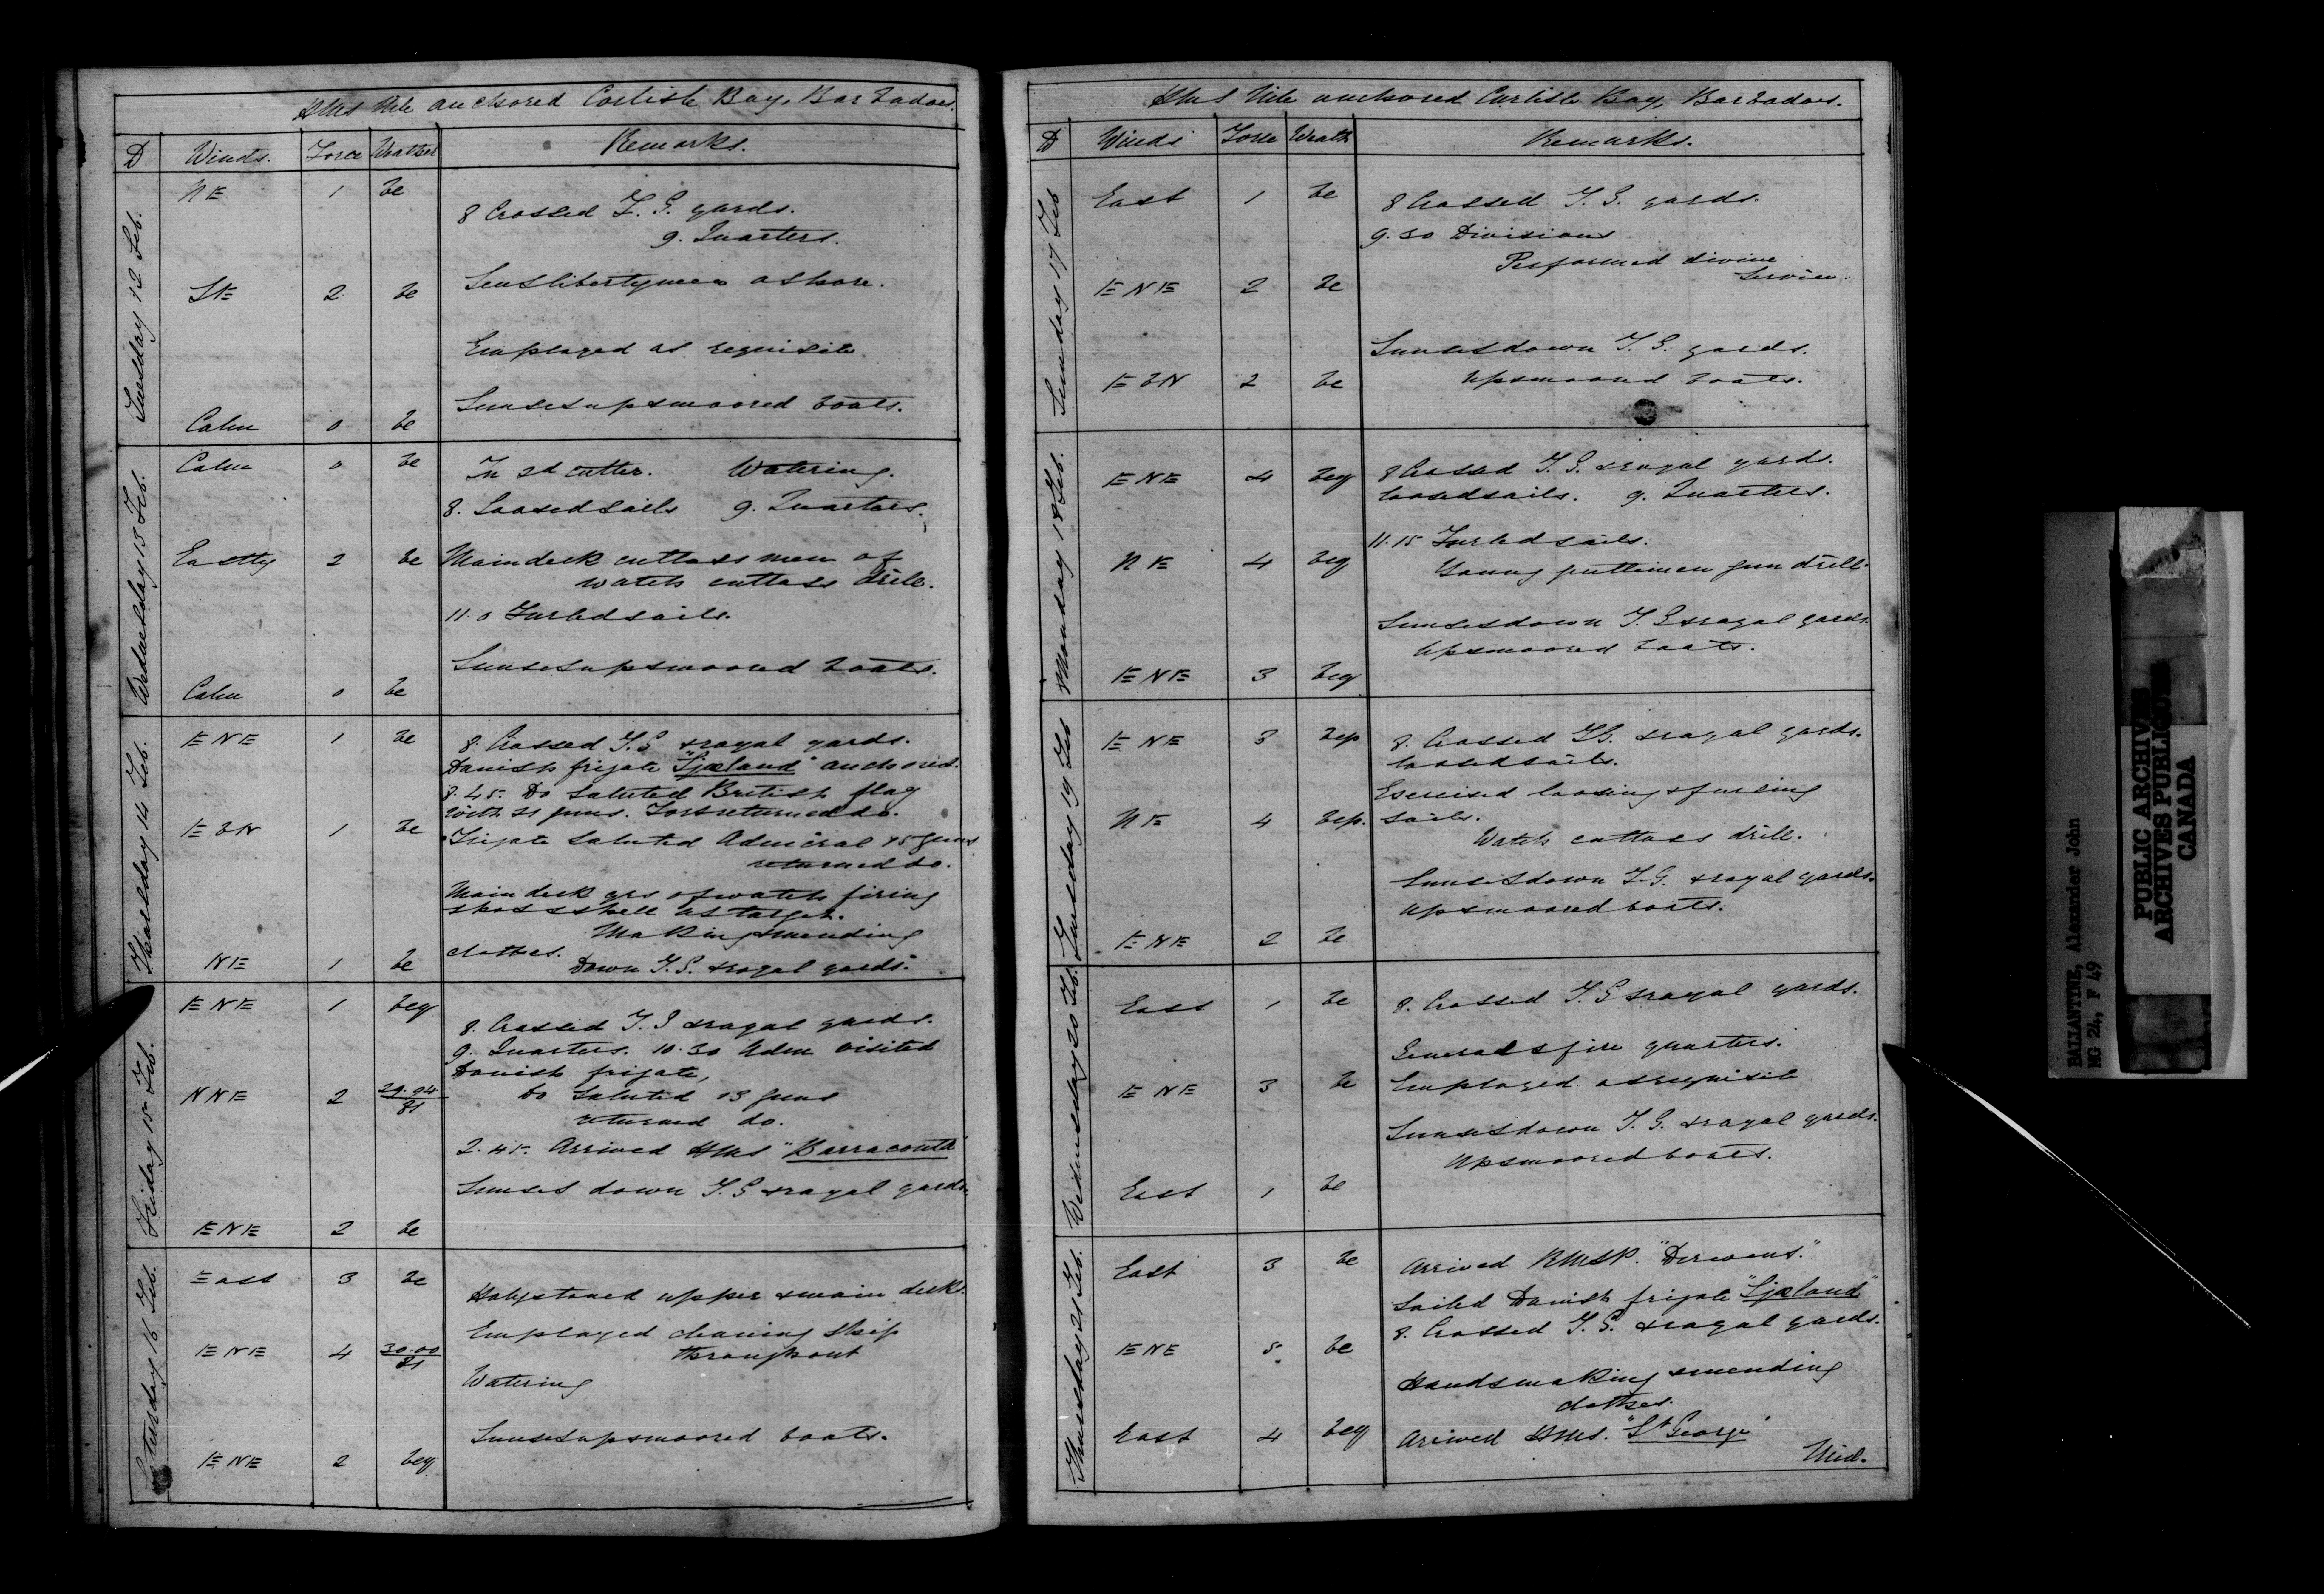 HMS Nile anchored Carlisle Bay, Barbadoes.
D Winds. Force Weather Remarks.
Tuesday 12 Feb.
NE 1 bc
8 Crossed T. G. yards.
9. Quarters.
SE 2 bc Sent liberty men ashore.
Employed as requisite
Sunset up & moored boats.
Calm 0 bc
Wednesday 13 Feb.
Calm 0 bc In 2d cutter. Watering.
8. Loosed sails 9. Quarters.
Eastly 2 bc Main deck cutlass men of
watch cutlass drill.
11.0 Furled sails.
Sunset up & moored boats.
Calm 0 bc
Thursday 14 Feb.
ENE 1 bc 8. Crossed T.G. & royal yards.
Danish frigate "Sjæland" anchored.
8.45 Do saluted British flag
with 21 guns. Fort returned do.
EbN 1 bc
Frigate saluted Admiral 15 guns
returned do.
Main deck qrs of watch firing
shot & shell at target.
Making & mending
clothes.
NE 1 bc Down T.G. & royal yards.
Friday 15 Feb.
ENE 1 bcq
8. Crossed T. G & royal yards.
9. Quarters. 10.30 Adm visited
Danish frigate,
NNE 2 29.94/81 Do saluted 13 guns
returned do.
2.45. Arrived HMS "Barracouta"
Sunset down T. G & royal yards.
ENE 2 bc
Saturday 16 Feb.
East 3 bc
Holystoned upper & main decks.
Employed cleaning ship
throughout
ENE 4 30.00/81
Watering
Sunset up & moored boats.
ENE 2 bcq
HMS Nile anchored Carlisle Bay, Barbadoes.
D Winds Force Weath Remarks.
Sunday 17 Feb
East 1 bc 8 Crossed T. G. yards.
9.30 Divisions
Performed divine
Service.
ENE 2 bc
Sunset down T. G. yards.
EbN 2 bc Up & moored boats.
Monday 18 Feb.
ENE 4 bcq 8 Crossed T. G. & royal yards.
loosed sails. 9. Quarters.
11.15 Furled sails.
NE 4 bcq Young gentlemen gun drill.
Sunset down T. G & royal yards.
Up & moored boats.
ENE 3 bcq
Tuesday 19 Feb
ENE 3 bcp 8. Crossed TG. & royal yards.
loosed sails.
Exercised loosing & furling
NE 4 bcp. sails.
Watch cutlass drill.
Sunset down T.G. & royal yards.
Up & moored boats.
ENE 2 bc
Wednesday 20 Feb.
East 1 bc 8. Crossed T. G & royal yards.
General & fire quarters.
ENE 3 bc Employed as requisite
Sunset down T. G. & royal yards.
Up & moored boats.
East 1 bc
Thursday 21 Feb.
East 3 bc Arrived RMSP. "Derwent."
Sailed Danish frigate "Sjæland"
8. Crossed T. G. & royal yards.
ENE 5 bc
Hands making & mending
clothes.
East 4 bcq Arrived HMS. "St George"
Mid.
BALLANTYNE, Alexander John
MG 24, F 49
PUBLIC ARCHIVES
ARCHIVES PUBLIQUES
CANADA